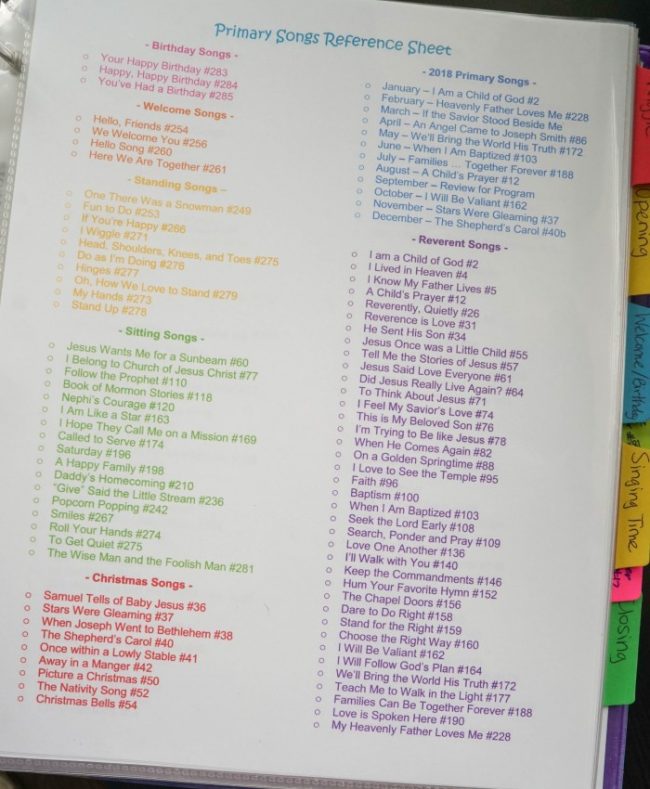 Primary Songs Reference Sheet
- Birthday Songs -
Your Happy Birthday #283
Happy, Happy Birthday #284
You've Had a Birthday #285
- Welcome Songs -
Hello, Friends #254
We Welcome You #256
Hello Song #260
Here We Are Together #261
- Standing Songs –
One There Was a Snowman #249
Fun to Do #253
If You're Happy #266
I Wiggle #271
Head, Shoulders, Knees, and Toes #275
Do as I'm Doing #276
Hinges #277
Oh, How We Love to Stand #279
My Hands #273
Stand Up #278
- Sitting Songs -
Jesus Wants Me for a Sunbeam #60
I Belong to Church of Jesus Christ #77
Follow the Prophet #110
Book of Mormon Stories #118
Nephi's Courage #120
I Am Like a Star #163
I Hope They Call Me on a Mission #169
Called to Serve #174
Saturday #196
A Happy Family #198
Daddy's Homecoming #210
"Give" Said the Little Stream #236
Popcorn Popping #242
Smiles #267
Roll Your Hands #274
To Get Quiet #275
The Wise Man and the Foolish Man #281
- Christmas Songs -
Samuel Tells of Baby Jesus #36
Stars Were Gleaming #37
When Joseph Went to Bethlehem #38
The Shepherd's Carol #40
Once within a Lowly Stable #41
Away in a Manger #42
Picture a Christmas #50
The Nativity Song #52
Christmas Bells #54
- 2018 Primary Songs -
January – I Am a Child of God #2
February – Heavenly Father Loves Me #228
March – If the Savior Stood Beside Me
April – An Angel Came to Joseph Smith #86
May – We'll Bring the World His Truth #172
June – When I Am Baptized #103
July – Families … Together Forever #188
August – A Child's Prayer #12
September – Review for Program
October – I Will Be Valiant #162
November – Stars Were Gleaming #37
December – The Shepherd's Carol #40b
- Reverent Songs -
I am a Child of God #2
I Lived in Heaven #4
I Know My Father Lives #5
A Child's Prayer #12
Reverently, Quietly #26
Reverence is Love #31
He Sent His Son #34
Jesus Once was a Little Child #55
Tell Me the Stories of Jesus #57
Jesus Said Love Everyone #61
Did Jesus Really Live Again? #64
To Think About Jesus #71
I Feel My Savior's Love #74
This is My Beloved Son #76
I'm Trying to Be like Jesus #78
When He Comes Again #82
On a Golden Springtime #88
I Love to See the Temple #95
Faith #96
Baptism #100
When I Am Baptized #103
Seek the Lord Early #108
Search, Ponder and Pray #109
Love One Another #136
I'll Walk with You #140
Keep the Commandments #146
Hum Your Favorite Hymn #152
The Chapel Doors #156
Dare to Do Right #158
Stand for the Right #159
Choose the Right Way #160
I Will Be Valiant #162
I Will Follow God's Plan #164
We'll Bring the World His Truth #172
Teach Me to Walk in the Light #177
Families Can Be Together Forever #188
Love is Spoken Here #190
My Heavenly Father Loves Me #228
Opening
Welcome/Birthday
Singing Time
Closing